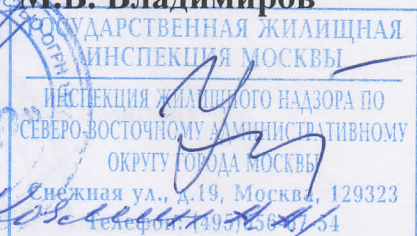 М.В. Владимиров
ОГРН
ГОСУДАРСТВЕННАЯ ЖИЛИЩНАЯ
ИНСПЕКЦИЯ МОСКВЫ
ИНСПЕКЦИЯ ЖИЛИЩНОГО НАДЗОРА ПО
СЕВЕРО-ВОСТОЧНОМУ АДМИНИСТРАТИВНОМУ
ОКРУГУ ГОРОДА МОСКВЫ
Снежная ул., д.19, Москва, 129323
Телефон: (495)